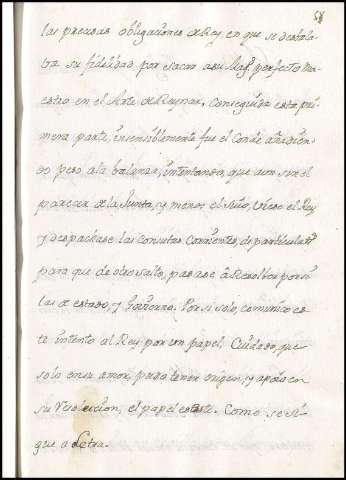 58
las precisas obligaciones de Rey en que se destala
va su fidelidad por sacar a su Mag.d perfecto ma
estro en el Arte de Reynar. Conseguida esta pri
mera parte, insensiblemente fue el Conde añadien
do peso a la balanza, intentando, que aun sin el
parecer de la Junta, y menos el Suio, viese el Rey
y despachase las Consultas Corrientes, de particulares
para que de otro salto, pasase â Resolver por si
las de estado, y Govierno. Por si solo, comunico es
te intento al Rey por un papel, Cuidado, que
solo en su amor, pudo tener origen, y apoio en
su Veneracion, el papel es este. Como se si
gue a Letra.